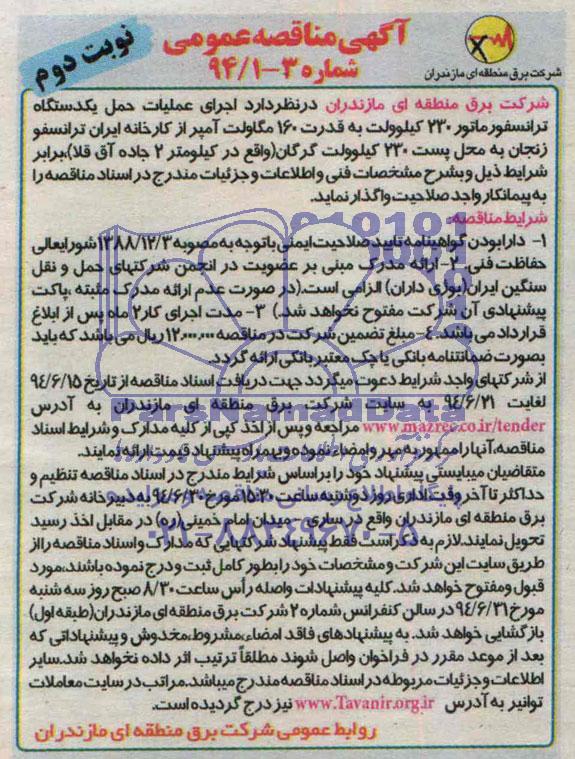 آگهی مناقصه عمومی
شماره ۳-۹۴/۱
نوبت دوم
شرکت برق منطقه ای مازندران
شرکت برق منطقه ای مازندران درنظردارد اجرای عملیات حمل یکدستگاه
ترانسفورماتور ۲۳۰ کیلوولت به قدرت ۱۶۰ مگاولت آمپر از کارخانه ایران ترانسفو
زنجان به محل پست ۲۳۰ کیلوولت گرگان(واقع در کیلومتر ۲ جاده آق قلا)،برابر
شرایط ذیل وبشرح مشخصات فنی و اطلاعات و جزئیات مندرج در اسناد مناقصه را
به پیمانکار واجد صلاحیت واگذار نماید.
شرایط مناقصه:
۱- دارابودن گواهینامه تایید صلاحیت ایمنی باتوجه به مصوبه ۱۳۸۸/۱۲/۳ شورایعالی
حفاظت فنی. ۲-ارائه مدرک مبنی بر عضویت در انجمن شرکتهای حمل و نقل
سنگین ایران(بوژی داران) الزامی است.(در صورت عدم ارائه مدرک مثبته ،پاکت
پیشنهادی آن شرکت مفتوح نخواهد شد.) ۳-مدت اجرای کار۲ ماه پس از ابلاغ
قرارداد می باشد.۴-مبلغ تضمین شرکت در مناقصه ۱۲٫۰۰۰٫۰۰۰ریال می باشد که باید
بصورت ضمانتنامه بانکی یا چک معتبر بانکی ارائه گردد.
از شرکتهای واجد شرایط دعوت میگردد جهت دریافت اسناد مناقصه از تاریخ ۹۴/۶/۱۵
لغایت ۹۴/۶/۲۱ به سایت شرکت برق منطقه ای مازندران به آدرس
www.mazrec.co.ir/tender مراجعه و پس از اخذ کپی از کلیه مدارک و شرایط اسناد
مناقصه،آنها را ممهور به مهر و امضاء نموده و بهمراه پیشنهاد قیمت ارائه نمایند.
متقاضیان میبایستی پیشنهاد خود را براساس شرایط مندرج در اسناد مناقصه تنظیم و
حداکثر تا آخر وقت اداری روز دوشنبه ساعت ۱۵:۳۰ مورخ ۹۴/۶/۳۰ به دبیرخانه شرکت
برق منطقه ای مازندران واقع در ساری - میدان امام خمینی(ره) در مقابل اخذ رسید
تحویل نمایند.لازم به ذکراست فقط پیشنهاد شرکتهایی که مدارک و اسناد مناقصه را از
طریق سایت این شرکت و مشخصات خود را بطور کامل ثبت و درج نموده باشند،مورد
قبول و مفتوح خواهد شد. کلیه پیشنهادات واصله رأس ساعت ۸/۳۰ صبح روز سه شنبه
مورخ ۹۴/۶/۳۱ در سالن کنفرانس شماره ۲ شرکت برق منطقه ای مازندران(طبقه اول)
بازگشایی خواهد شد. به پیشنهادهای فاقد امضاء،مشروط،مخدوش و پیشنهاداتی که
بعد از موعد مقرر در فراخوان واصل شوند مطلقاً ترتیب اثر داده نخواهد شد.سایر
اطلاعات و جزئیات مربوطه در اسناد مناقصه مندرج میباشد.مراتب در سایت معاملات
توانیر به آدرس www.Tavanir.org.ir نیز درج گردیده است.
روابط عمومی شرکت برق منطقه ای مازندران
ParsNamadData
۰۲۱-۸۸۳۴۹۶۷۰-۵